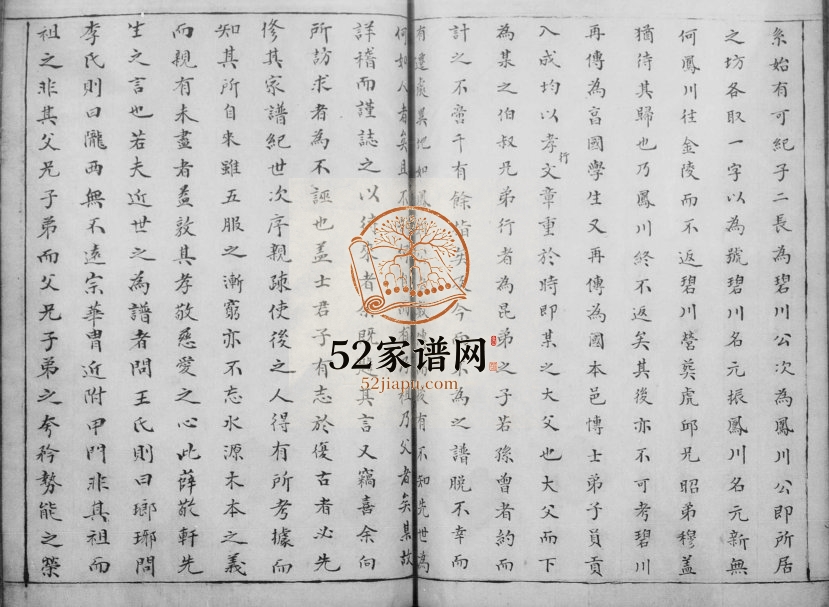 糸始有可紀子二長為碧川公次為鳳川公即所居
之坊各取一字以為號碧川名元振鳳川名元新無
何鳳川往金陵而不返碧川營葬虎邱兄昭弟穆蓋
猶待其歸也乃鳳川終不返矣其後亦不可考碧川
再傳為國學生又再傳為國本邑博士弟子員貢
入成均以孝行文章重於時即某之大父也大父而下
為某之伯叔兄弟行者為昆弟之子若孫曾者約而
計之不啻千有餘指矣今而不為之譜脫不幸而
有遷處異地如鳳有不知先世為
何如人者矣且不祖乃父者矣某故
詳稽而謹誌之以待來者余既其言又竊喜余向
所訪求者為不誣也蓋士君子有志於復古者必先
修其家譜紀世次序親疎使後之人得有所考據而
知其所自來雖五服之漸窮亦不忘水源木本之義
而親有未盡者益敦其孝敬慈愛之心此薛敬軒先
生之言也若夫近世之為譜者問王氏則曰瑯琊問
李氏則曰隴西無不遠宗華胄近附甲門非其祖而
祖之非其父兄子弟而父兄子弟之夸矜勢能之榮
52家谱网
52jiapu.com